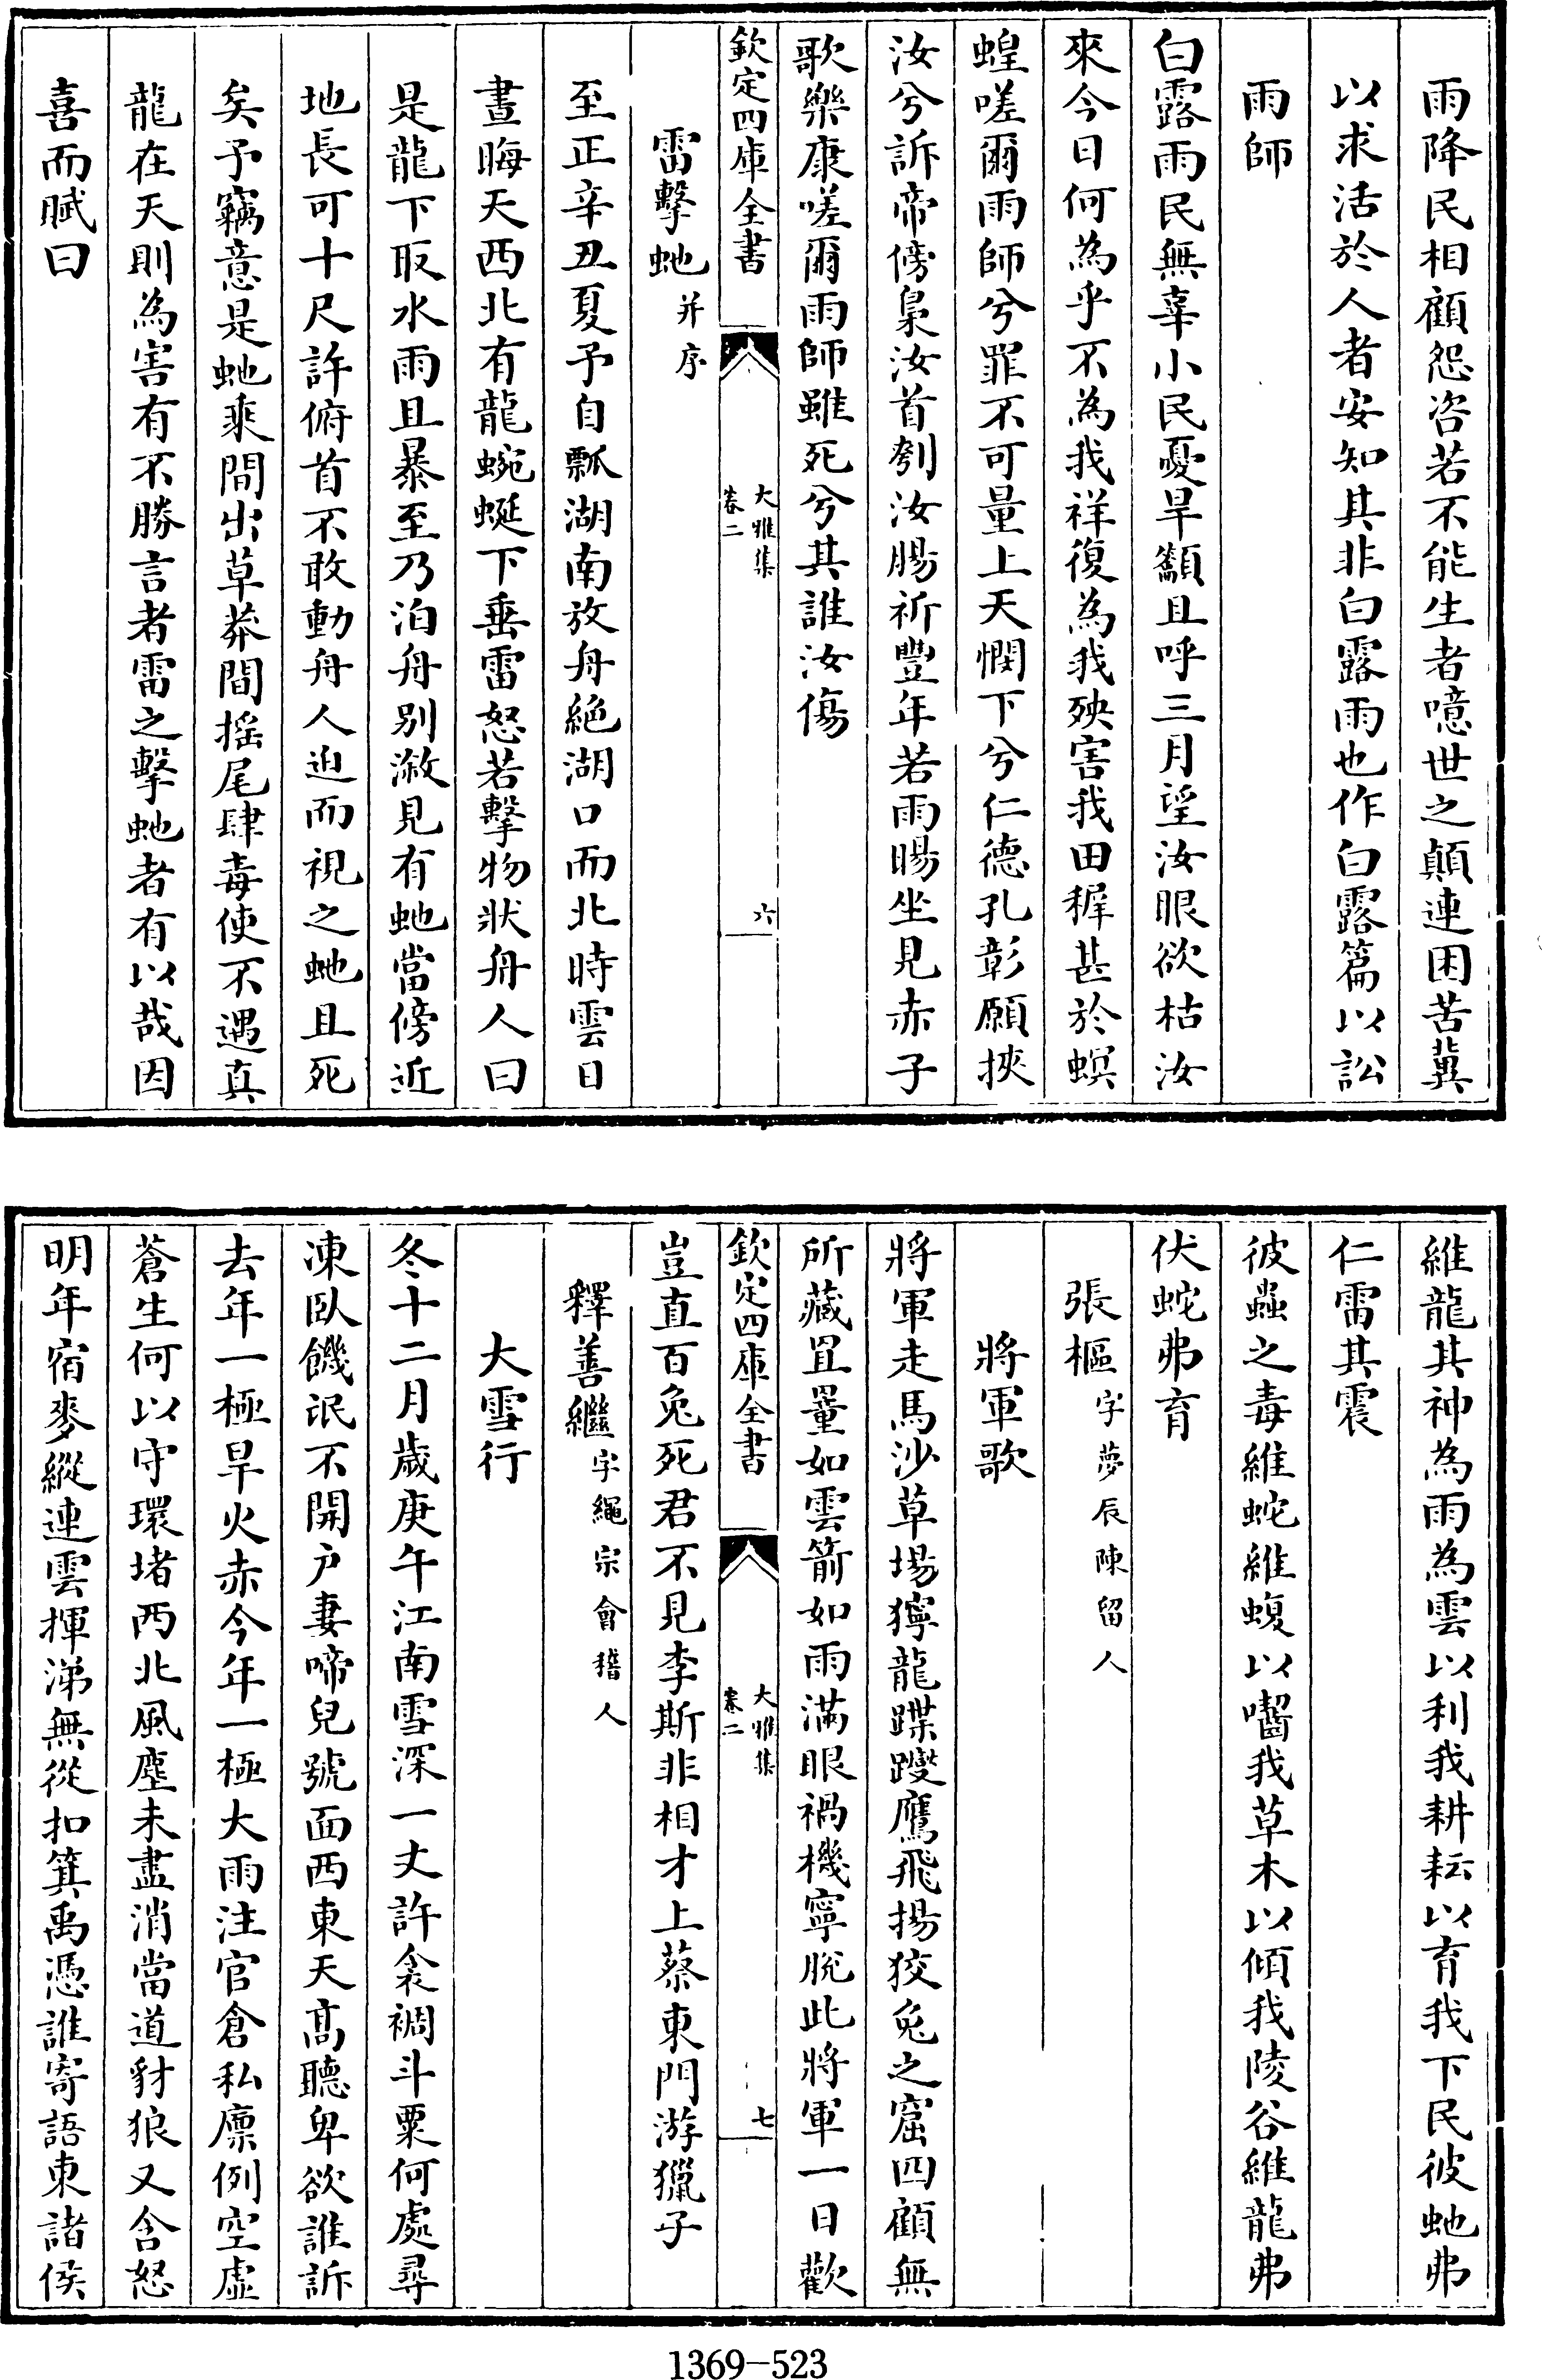 雨降民相顧怨咨若不能生者噫世之顛連困苦冀
以求活於人者安知其非白露雨也作白露篇以訟
雨師
白露雨民無辜小民憂旱籲且呼三月望汝眼欲枯汝
來今日何為乎不為我祥復為我殃害我田穉甚於螟
蝗嗟爾雨師兮罪不可量上天憫下兮仁德孔彰願挾
汝兮訴帝傍梟汝首刳汝腸祈豐年若雨暘坐見赤子
歌樂康嗟爾雨師雖死兮其誰汝傷
欽定四庫全書
大雅集
卷二
六
雷擊虵并序
至正辛丑夏予自瓢湖南放舟絶湖口而北時雲日
晝晦天西北有龍蜿蜒下垂雷怒若擊物狀舟人曰
是龍下取水雨且暴至乃泊舟别漵見有虵當傍近
地長可十尺許俯首不敢動舟人迫而視之虵且死
矣予竊意是虵乘間出草莽間揺尾肆毒使不遇真
龍在天則為害有不勝言者雷之擊虵者有以哉因
喜而賦曰
維龍其神為雨為雲以利我耕耘以育我下民彼虵弗
仁雷其震
彼蟲之毒維蛇維蝮以嚙我草木以傾我陵谷維龍弗
伏蛇弗育
張樞字夢辰陳留人
將軍歌
將軍走馬沙草場獰龍蹀躞鷹飛揚狡兔之窟四顧無
所藏罝罿如雲箭如雨滿眼禍機寧脫此將軍一日歡
欽定四庫全書
大雅集
卷二
七
豈直百兔死君不見李斯非相才上蔡東門游獵子
釋善繼字繩宗會稽人
大雪行
冬十二月歲庚午江南雪深一丈許衾裯斗粟何處尋
凍臥饑氓不開户妻啼兒號面西東天高聽卑欲誰訴
去年一極旱火赤今年一極大雨注官倉私廪例空虛
蒼生何以守環堵西北風塵未盡消當道豺狼又含怒
明年宿麥縱連雲揮涕無從扣箕禹憑誰寄語東諸侯
1369-523